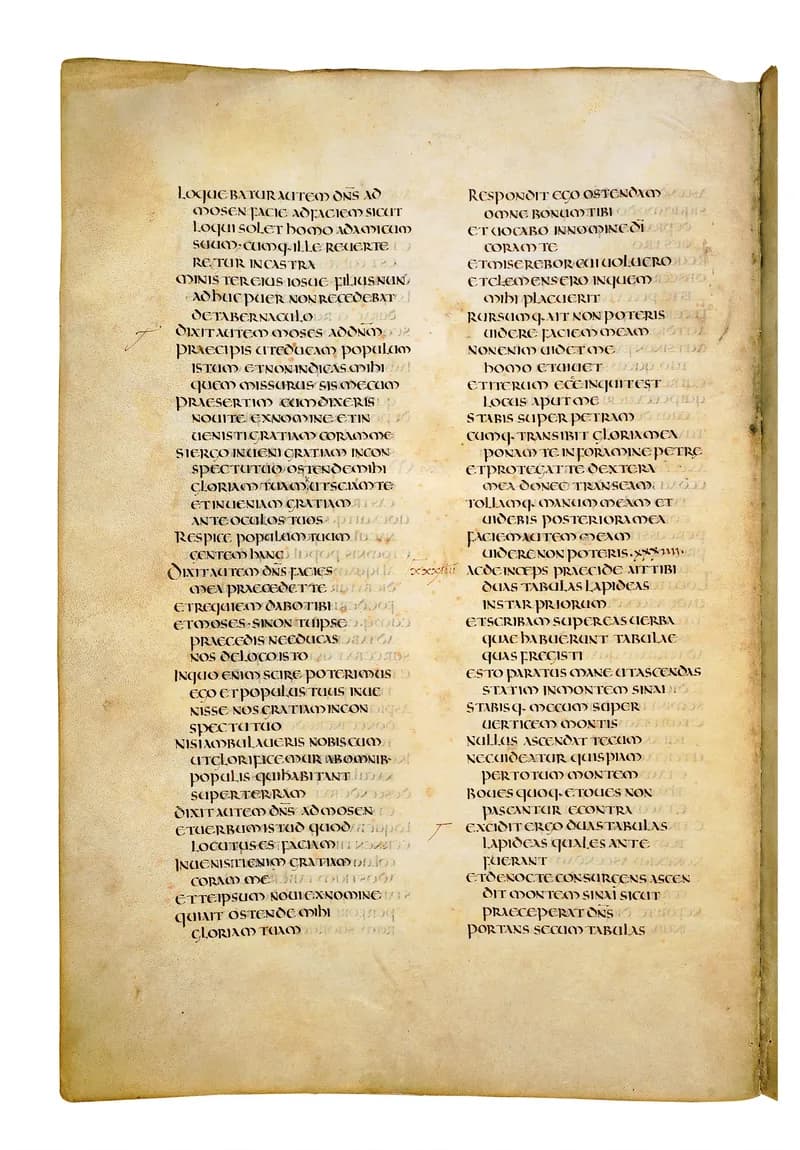 LOQUEBATUR AUTEM DN̄S AD
MOSEN FACIE AD FACIEM SICUT
LOQUI SOLET HOMO AD AMICUM
SUUM· CUMQ· ILLE REUERTE
RETUR IN CASTRA
MINISTER EIUS IOSUE FILIUS NUN
ADHUC PUER NON RECEDEBAT
DE TABERNACULO
DIXIT AUTEM MOSES AD DN̄M
PRAECIPIS UT EDUCAM POPULUM
ISTUM ET NON INDICAS MIHI
QUEM MISSURUS SIS MECUM
PRAESERTIM CUM DIXERIS
NOUI TE EX NOMINE ET IN
UENISTI GRATIAM CORAM ME
SI ERGO INUENI GRATIAM IN CON
SPECTU TUO OSTENDE MIHI
GLORIAM TUAM UT SCIAM TE
ET INUENIAM GRATIAM
ANTE OCULOS TUOS
RESPICE POPULUM TUUM
GENTEM HANC
DIXIT AUTEM DN̄S FACIES
MEA PRAECEDET TE
ET REQUIEM DABO TIBI
ET MOSES· SI NON TU IPSE
PRAECEDIS NE EDUCAS
NOS DE LOCO ISTO
IN QUO ENIM SCIRE POTERIMUS
EGO ET POPULUS TUUS INUE
NISSE NOS GRATIAM IN CON
SPECTU TUO
NISI AMBULAUERIS NOBISCUM
UT GLORIFICEMUR AB OMNIB·
POPULIS QUI HABITANT
SUPER TERRAM
DIXIT AUTEM DN̄S AD MOSEN
ET UERBUM ISTUD QUOD
LOCUTUS ES FACIAM
INUENISTI ENIM GRATIAM
CORAM ME
ET TE IPSUM NOUI EX NOMINE
QUI AIT OSTENDE MIHI
GLORIAM TUAM
RESPONDIT EGO OSTENDAM
OMNE BONUM TIBI
ET UOCABO IN NOMINE DĪ
CORAM TE
ET MISEREBOR CUI UOLUERO
ET CLEMENS ERO IN QUEM
MIHI PLACUERIT
RURSUMQ· AIT NON POTERIS
UIDERE FACIEM MEAM
NON ENIM UIDET ME
HOMO ET UIUET
ET ITERUM ECCE INQUIT EST
LOCUS APUT ME
STABIS SUPER PETRAM
CUMQ· TRANSIBIT GLORIA MEA
PONAM TE IN FORAMINE PETRE
ET PROTEGAT TE DEXTERA
MEA DONEC TRANSEAM
TOLLAMQ· MANUM MEAM ET
UIDEBIS POSTERIORA MEA
FACIEM AUTEM MEAM
UIDERE NON POTERIS· XXXIIII·
XXXIIII AC DEINCEPS PRAECIDE AIT TIBI
DUAS TABULAS LAPIDEAS
INSTAR PRIORUM
ET SCRIBAM SUPER EAS UERBA
QUAE HABUERUNT TABULAE
QUAS FREGISTI
ESTO PARATUS MANE UT ASCENDAS
STATIM IN MONTEM SINAI
STABISQ· MECUM SUPER
UERTICEM MONTIS
NULLUS ASCENDAT TECUM
NEC UIDEATUR QUISPIAM
PER TOTUM MONTEM
BOUES QUOQ· ET OUES NON
PASCANTUR ECONTRA
EXCIDIT ERGO DUAS TABULAS
LAPIDEAS QUALES ANTE
FUERANT
ET DE NOCTE CONSURGENS ASCEN
DIT MONTEM SINAI SICUT
PRAECEPERAT DN̄S
PORTANS SECUM TABULAS